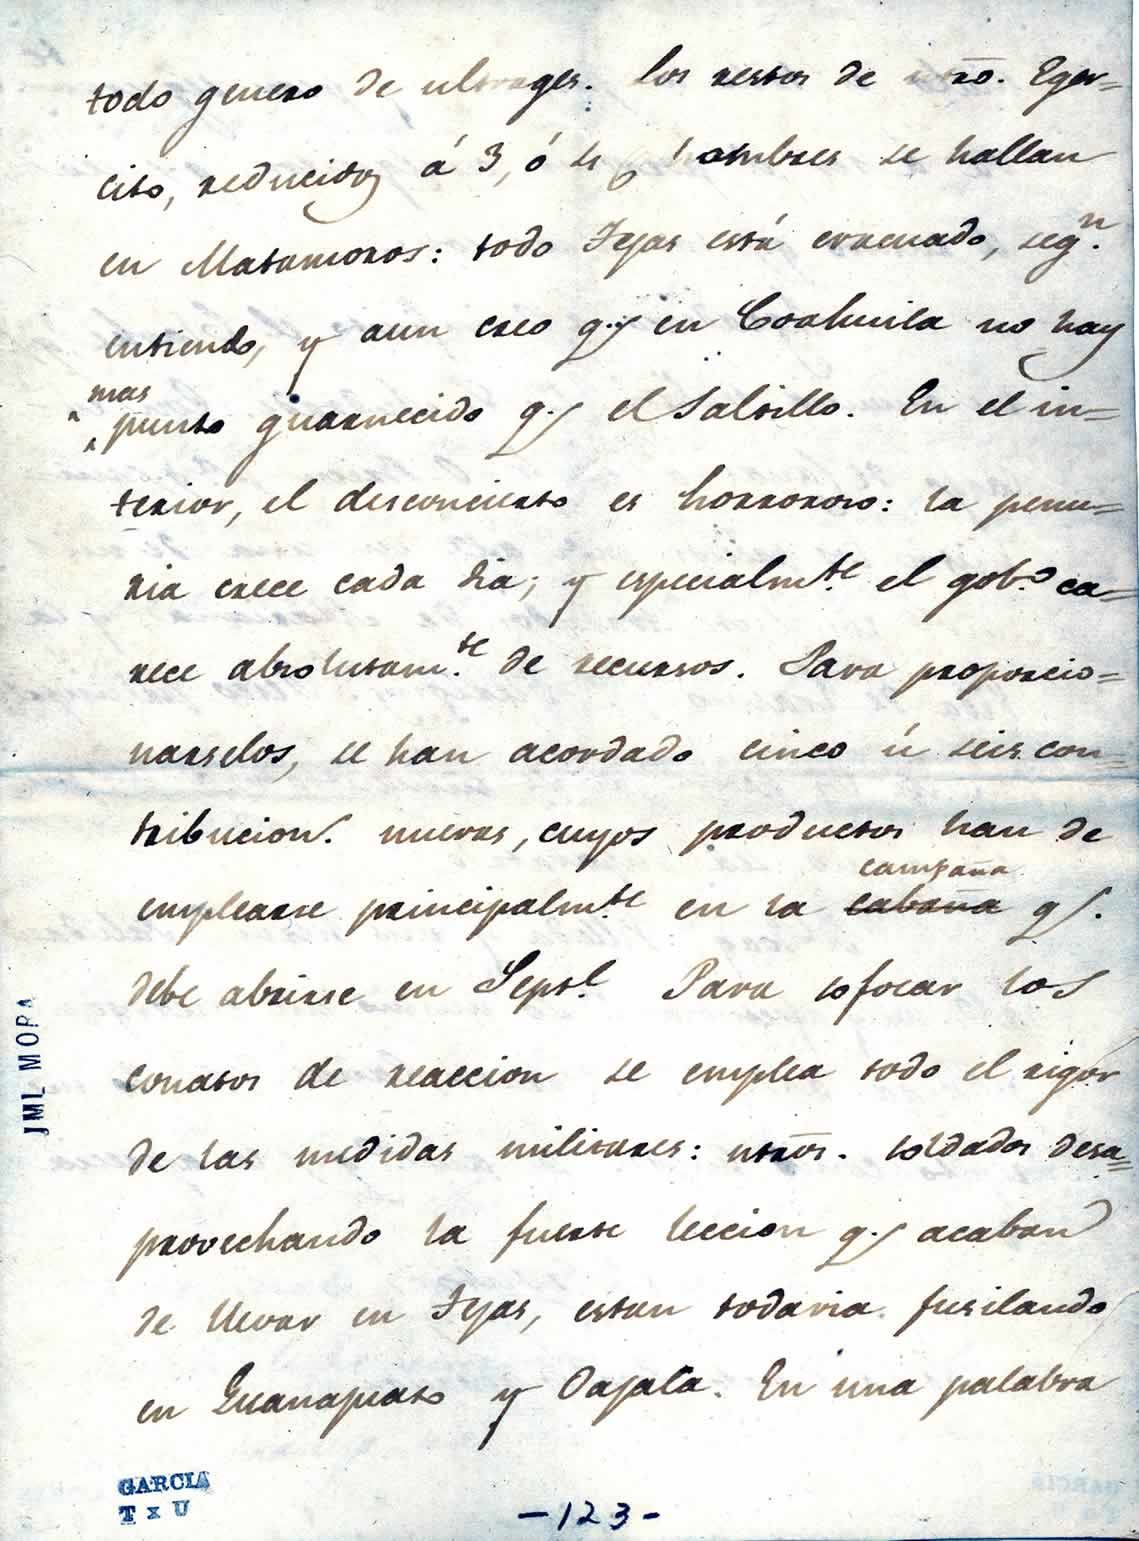 todo genero de ultrages. los restos de ntro. Eger=
cito, reducidos á 3, ó hombres se hallan
en Matamoros: todo Tejas está evacuado, segⁿ.
entiendo, y aun creo q.e en Coahuila no hay
mas
punto guarnecido q.e el Saltillo. En el in=
terior, el desconcierto es horroroso: la penu=
ria crece cada dia; y especialm.te el gob.o ca=
rece absolutam.te de recursos. Para proporcio=
narselos, se han acordado cinco ú seis con=
tribucion.s nuevas, cuyos productos han de
campaña
emplearse principalm.te en la cabaña q.e
debe abrirse en Sept.e Para sofocar los
conatos de reaccion se emplea todo el rigor
de las medidas militares: ntros. soldados desa=
provechando la fuerte leccion q.e acaban
de llevar en Tejas, estan todavia fusilando
en Guanajuato y Oajaca. En una palabra
JML MORA
GARCIA
T x U
-123-